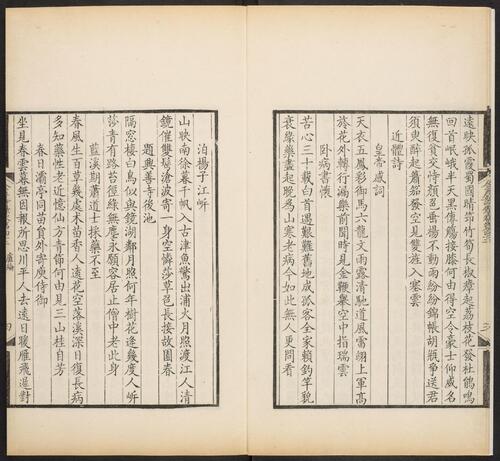 遠映孤霞蜀國晴笻竹筍長椒瘴起荔枝花發杜鵑鳴
回首岷峨半天黑傳觴接膝何由得空令豪士仰威名
無復貧交恃顏色垂楊不動雨紛紛錦帳胡瓶爭送君
須臾醉起簫笳發空見雙旌入塞雲
近體詩
皇帝感詞
天衣五鳳彩御馬六龍文雨露清馳道風雷翊上軍高
旍花外轉行漏樂前聞時見金鞭舉空中指瑞雲
臥病書懷
苦心三十載白首遇艱難舊地成孤客全家賴釣竿貌
衰緣藥盡起晚爲山寒老病今如此無人更問看
泊楊子江岸
山映南徐暮千帆入古津魚驚出浦火月照渡江人清
鏡催雙鬢滄波寄一身空憐莎草色長接故園春
題興善寺後池
隔窗棲白鳥似與鏡湖鄰月照何年樹花逢幾度人岸
莎青有路苔徑綠無塵永願容居止僧中老此身
藍溪期蕭道士採藥不至
春風生百草幾處术苗香人遠花空落溪深日復長病
多知藥性老近憶仙方青節何由見三山桂自芳
春日灞亭同苗員外寄庾侍御
坐見春雲暮無因報所思川平人去遠日暖雁飛遲對